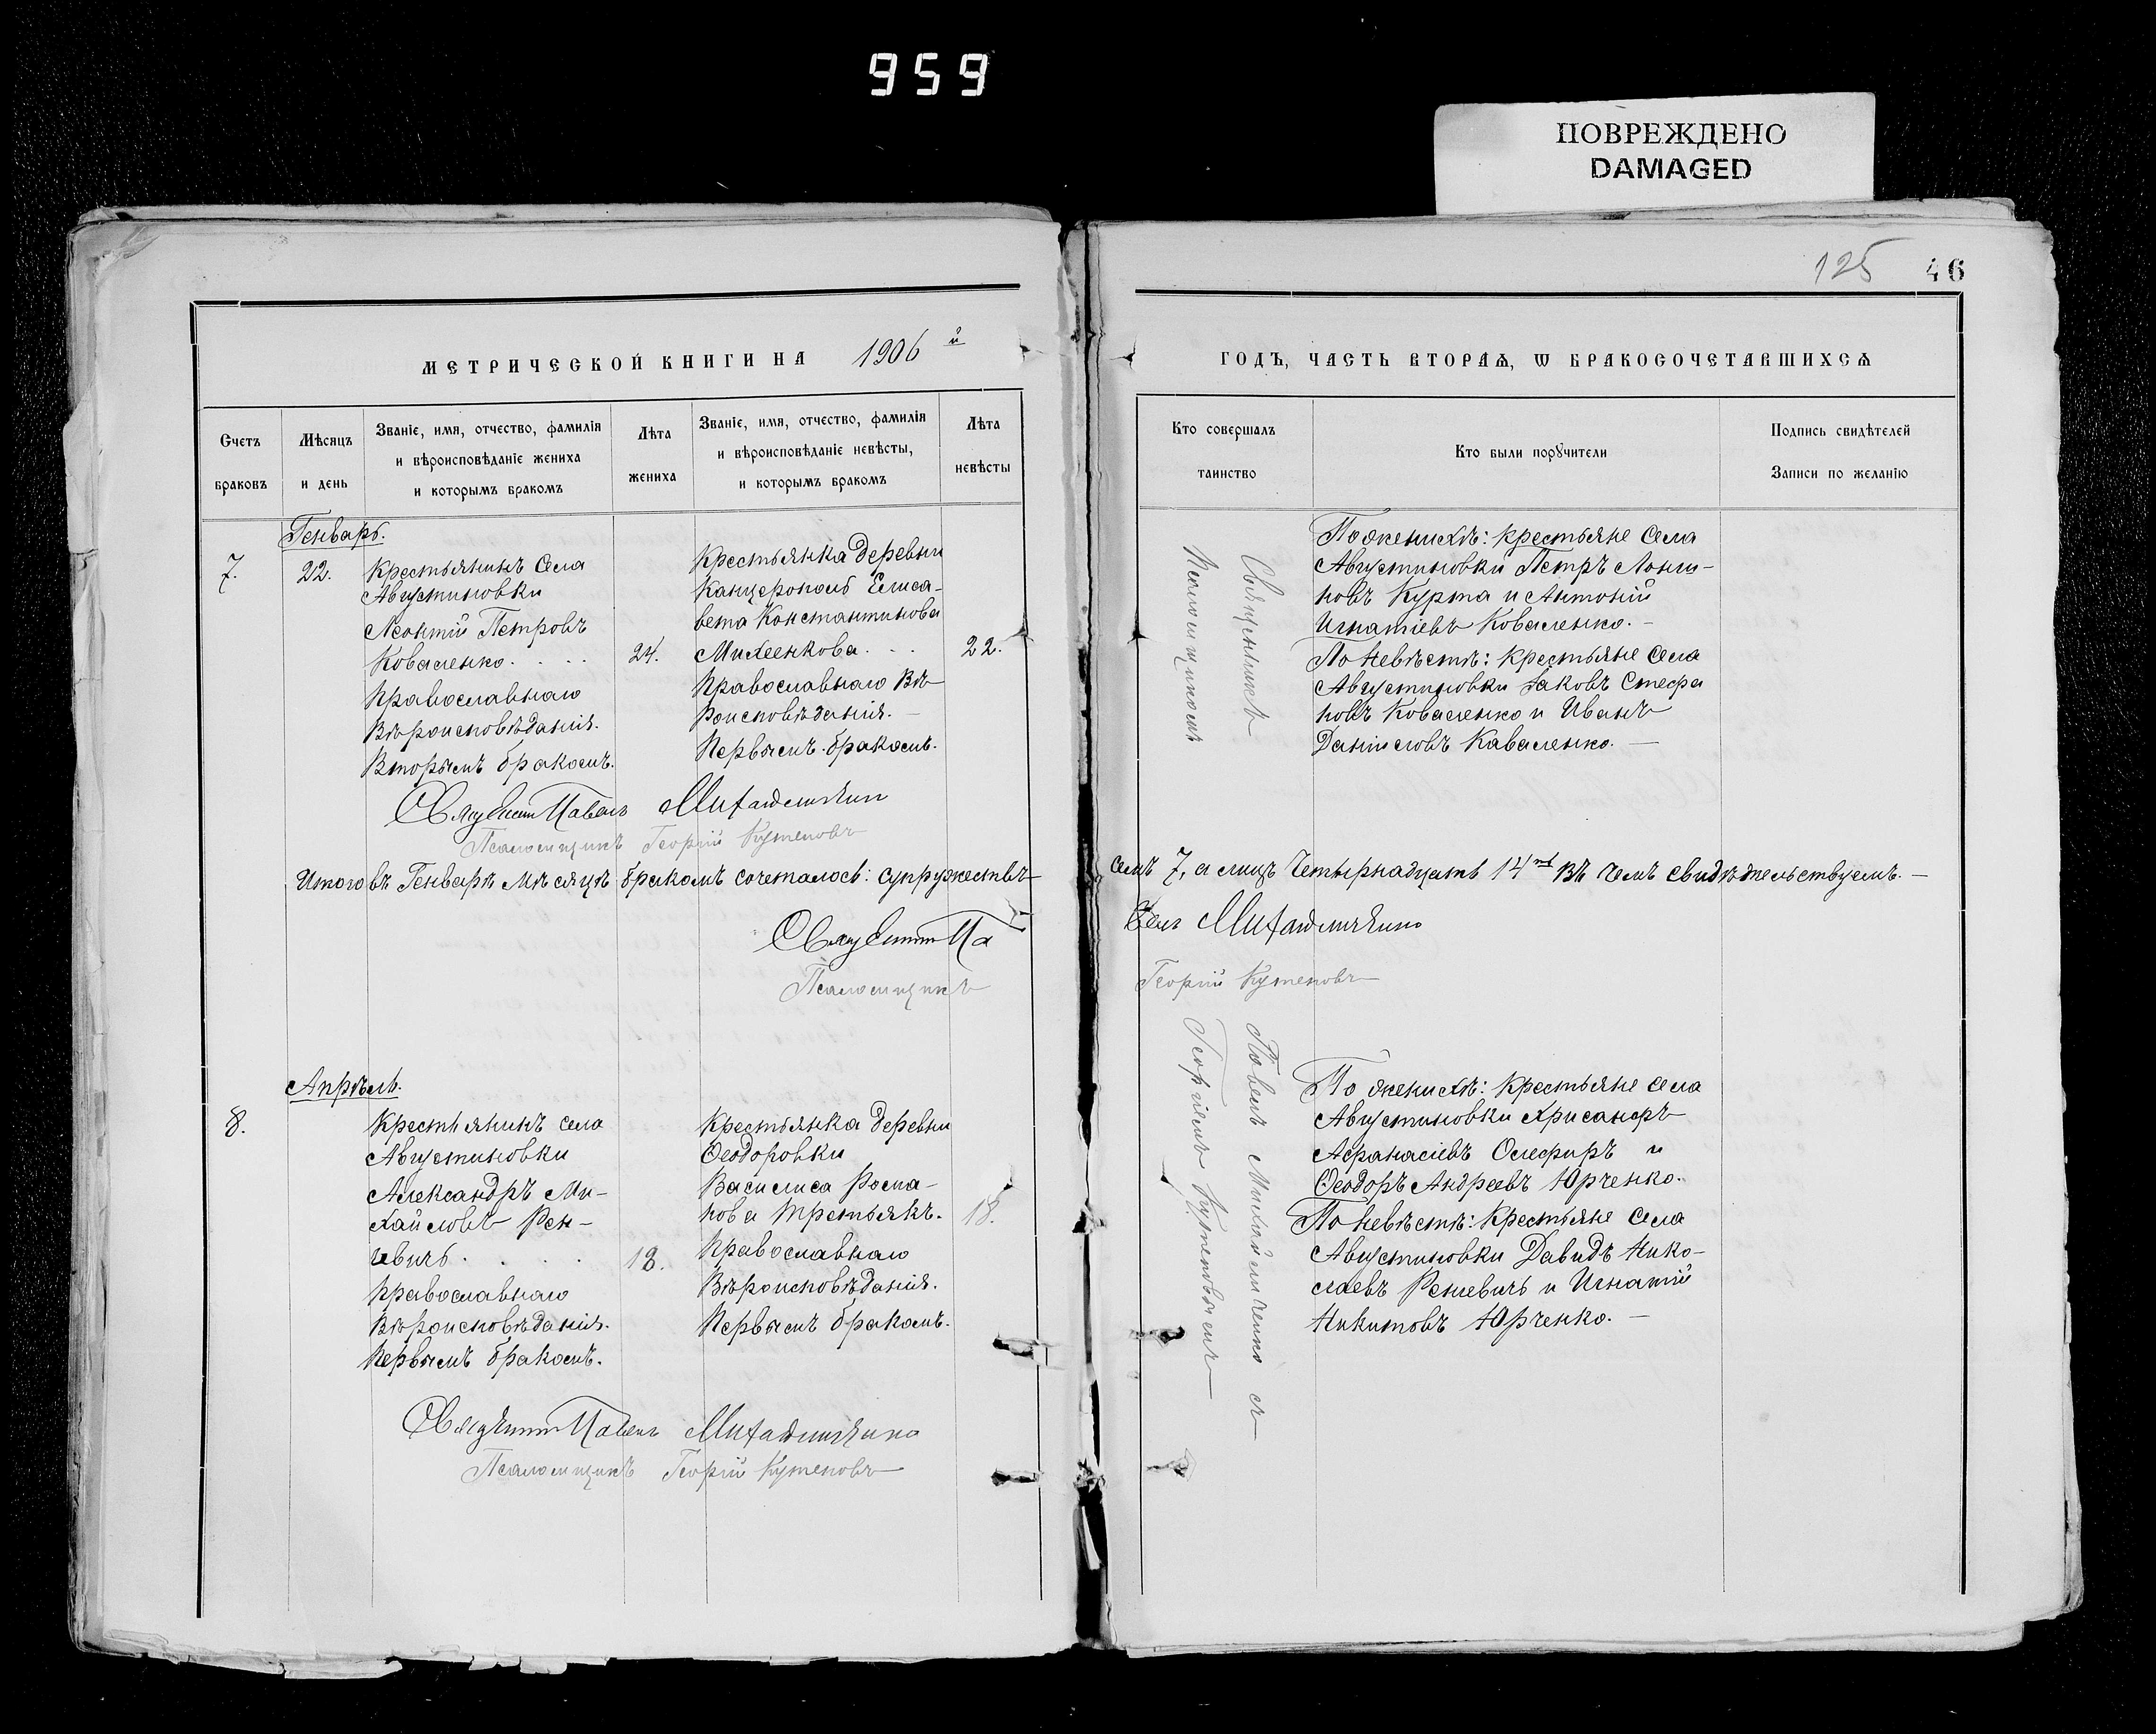 959
ПОВРЕЖДЕНО
DAMAGED
125 46
МЕТРИЧЕСКОЙ КНИГИ НА 1906 й
Счетъ браковъ
Мѣсяцъ и день
Званіе, имя, отчество, фамилія
и вѣроисповѣданіе жениха
и которымъ бракомъ
Лѣта жениха
Званіе, имя, отчество, фамилія
и вѣроисповѣданіе невѣсты,
и которымъ бракомъ
Лѣта невѣсты
Генварь.
7.
22.
Крестьянинъ Села
Августиновки
Леонтій Петровъ
Коваленко. . . .
Православнаго
Вѣроисповѣданія.
Вторымъ бракомъ.
24.
Крестьянка деревни
Елиса-
вета Константинова
Михеенкова . . .
Православнаго Вѣ-
роисповѣданія. —
Первымъ бракомъ.
22.
Павелъ
Псаломщикъ Георгій Кутеповъ
Итого въ Генварѣ Мѣсяцѣ бракомъ сочеталось: супружествъ
Па
Псаломщикъ
Апрѣль.
8.
Крестьянинъ села
Августиновки
Александръ Ми-
хайловъ Рен-
чевичъ . . . .
Православнаго
Вѣроисповѣданія.
Первымъ бракомъ.
18.
Крестьянка деревни
Ѳеодоровки
Василиса Рома-
нова Третьякъ.
Православнаго
Вѣроисповѣданія.
Первымъ бракомъ.
18.
Павелъ
Псаломщикъ Георгій Кутеповъ
ГОДЪ, ЧАСТЬ ВТОРАѦ, Ѡ БРАКОСОЧЕТАВШИХСѦ
Кто совершалъ
таинство
Кто были порꙋчители
Подпись свидѣтелей
Записи по желанію
Священникъ
Псаломщикомъ
По женихѣ: Крестьяне Села
Августиновки Петръ Логи-
новъ Курта и Антоній
Игнатіевъ Коваленко. —
По Невѣстѣ: Крестьяне Села
Августиновки Іаковъ Стефа
новъ Коваленко и Иванъ
Даніиловъ Каваленко. —
семъ 7, а лицъ Четырнадцать 14 въ чемъ свидѣтельствуемъ. —
велъ
Георгій Кутеповъ
Павелъ съ
Георгіемъ Кутеповымъ
По женихѣ: Крестьяне села
Августиновки Хрисанфъ
Афанасіевъ Олефиръ и
Ѳеодоръ Андреевъ Юрченко.
По невѣстѣ: Крестьяне Села
Августиновки Давидъ Нико-
лаевъ Ренчевичъ и Игнатій
Никитовъ Юрченко. —